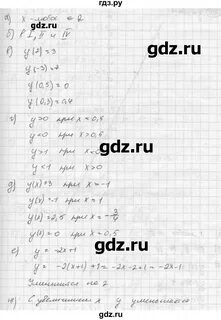 а) x - любое
б) в I, II и IV
y(2)=3
y(-3)=7
y(0,5)=0
y(0,3)=0,4
г) y>0 при x<0,5
y<0 при x>0,5
y>1 при x<0
y<1 при x>0
д) y(x)=3 x=-1
y(x)=-1 при x=1
y(x)=2,5 при x=-3/4
y(x)=0 при x=0,5
е) y=-2x+1
y=-2(x+1)+1=-2x-2+1=-2x-1
Уменьшится на 2
ж) С увеличением x y уменьшается
gdz.ru
gdz.ru
gdz.ru
gdz.ru
gdz.ru
gdz.ru
gdz.ru
gdz.ru